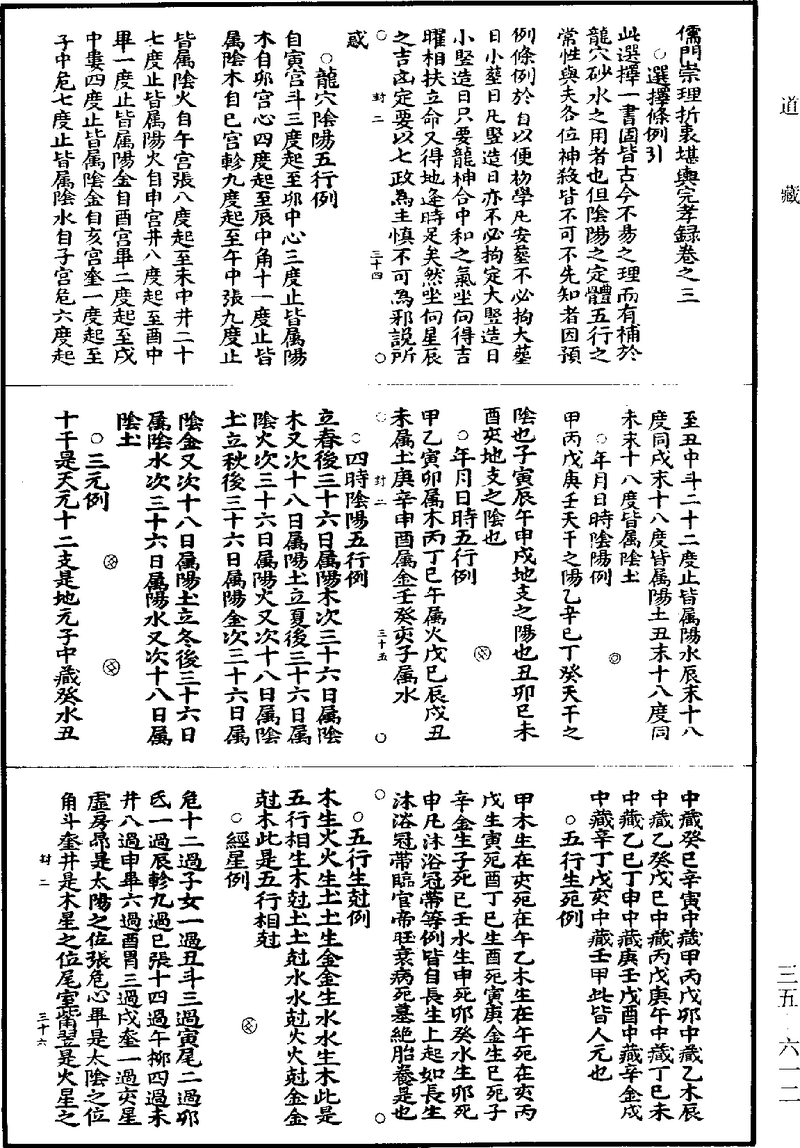 道藏
三五·六一二
儒門崇理折衷堪輿完孝録卷之三
○選擇條例引
此選擇一書固皆古今不易之理而有補於
龍穴砂水之用者也但陰陽之定體五行之
常性與夫各位神殺皆不可不先知者因預
例條例於自以便初學凡安墓不必拘大墓
日小墓日凡竪造日亦不必拘定大竪造日
小竪造日只要龍神合中和之氣坐向得吉
曜相扶立命又得地逢時足矣然坐向星辰
之吉凶定要以七政為主慎不可為邪說所
惑
○龍穴陰陽五行例
自寅宮斗三度起至卯中心三度止皆属陽
木自卯宮心四度起至辰中角十一度止皆
属陰木自巳宮軫九度起至午中張九度止
皆属陰火自午宮張八度起至未中井二十
七度止皆属陽火自申宮井八度起至酉中
畢一度止皆属陽金自酉宮畢二度起至戌
中婁四度止皆属陰金自亥宮奎一度起至
子中危七度止皆属陰水自子宮危六度起
封二
三十四
至丑中斗二十二度止皆属陽水辰末十八
度同戌末十八度皆属陽土丑末十八度同
未末十八度皆属陰土
○年月日時陰陽例
甲丙戊庚壬天干之陽乙辛巳丁癸天干之
陰也子寅辰午申戌地支之陽也丑卯巳未
酉亥地支之陰也
○年月日時五行例
甲乙寅卯属木丙丁巳午属火戊巳辰戌丑
未属土庚辛申酉属金壬癸亥子属水
○四時陰陽五行例
立春後三十六日属陽木次三十六日属陰
木又次十八日属陽土立夏後三十六日属
陰火次三十六日属陽火又次十八日属陰
土立秋後三十六日属陽金次三十六日属
陰金又次十八日属陽土立冬後三十六日
属陰水次三十六日属陽水又次十八日属
陰土
○三元例
十干是天元十二支是地元子中藏癸水丑
封二
三十五
中藏癸巳辛寅中藏甲丙戊卯中藏乙木辰
中藏乙癸戊巳中藏丙戊庚午中藏丁巳未
中藏乙巳丁申中藏庚壬戊酉中藏辛金戌
中藏辛丁戊亥中藏壬甲此皆人元也
○五行生死例
甲木生在亥死在午乙木生在午死在亥丙
戊生寅死酉丁巳生酉死寅庚金生巳死子
辛金生子死巳壬水生申死卯癸水生卯死
申凡沐浴冠帶等例皆自長生上起如長生
沐浴冠帶臨官帝旺衰病死墓絶胎養是也
○五行生尅例
木生火火生土土生金金生水水生木此是
五行相生木尅土土尅水水尅火火尅金金
尅木此是五行相尅
○經星例
危十二過子女一過丑斗三過寅尾二過卯
氐一過辰軫九過巳張十四過午柳四過未
井八過申畢六過酉胃三過戌奎一過亥星
虛房昴是太陽之位張危心畢是太陰之位
角斗奎井是木星之位尾室觜翌是火星之
封二
三十六